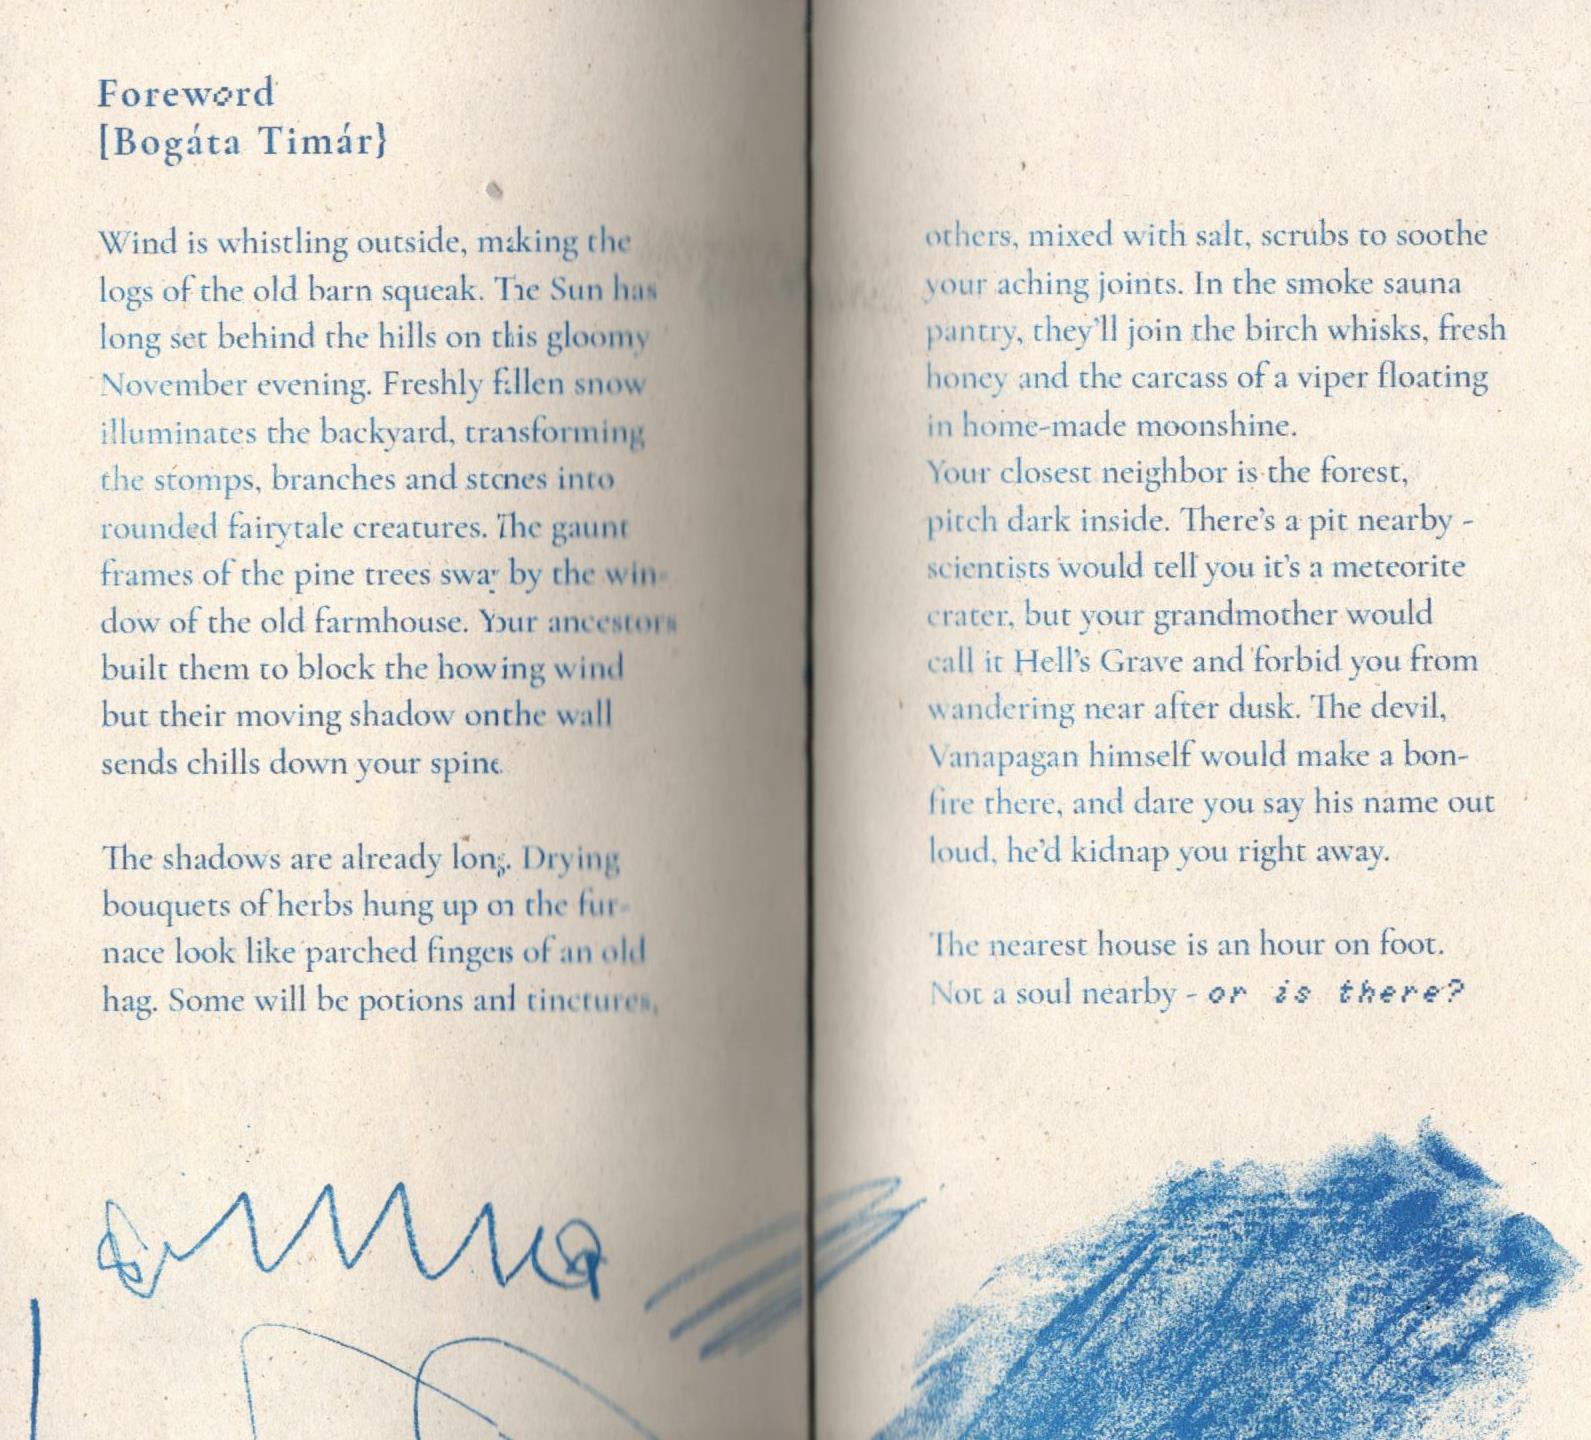 Foreword
[Bogáta Timár}
Wind is whistling outside, making the
logs of the old barn squeak. The Sun has
long set behind the hills on this gloomy
November evening. Freshly fallen snow
illuminates the backyard, transforming
the stomps, branches and stones into
rounded fairytale creatures. The gaunt
frames of the pine trees sway by the win-
dow of the old farmhouse. Your ancestors
built them to block the howling wind
but their moving shadow on the wall
sends chills down your spine.
The shadows are already long. Drying
bouquets of herbs hung up on the fur-
nace look like parched fingers of an old
hag. Some will be potions and tinctures,
others, mixed with salt, scrubs to soothe
your aching joints. In the smoke sauna
pantry, they'll join the birch whisks, fresh
honey and the carcass of a viper floating
in home-made moonshine.
Your closest neighbor is the forest,
pitch dark inside. There's a pit nearby -
scientists would tell you it's a meteorite
crater, but your grandmother would
call it Hell's Grave and forbid you from
wandering near after dusk. The devil,
Vanapagan himself would make a bon-
fire there, and dare you say his name out
loud, he'd kidnap you right away.
The nearest house is an hour on foot.
Not a soul nearby - or is there?